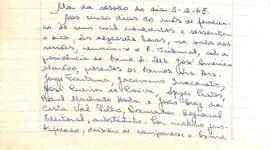 Ata da sessão do dia 5-2-68.
Aos cinco dias do mês de feverei-
ro de um mil novecentos e sessenta
e oito, às dezesseis horas, na sala das
sessões, reuniu-se o E. Tribunal, sob a
presidência do Exmo. Sr. Des. José Américo
Macêdo, presentes os Exmos. Srs. Drs.
Jorge Fontana, Jacomino Inacarato,
José Pereira de Paiva,
Raul Machado Horta e João Braz da
Costa Val Filho, Procurador Regional
Eleitoral, substituto. Por motivo jus-
tificado, deixou de comparecer o Exmo.